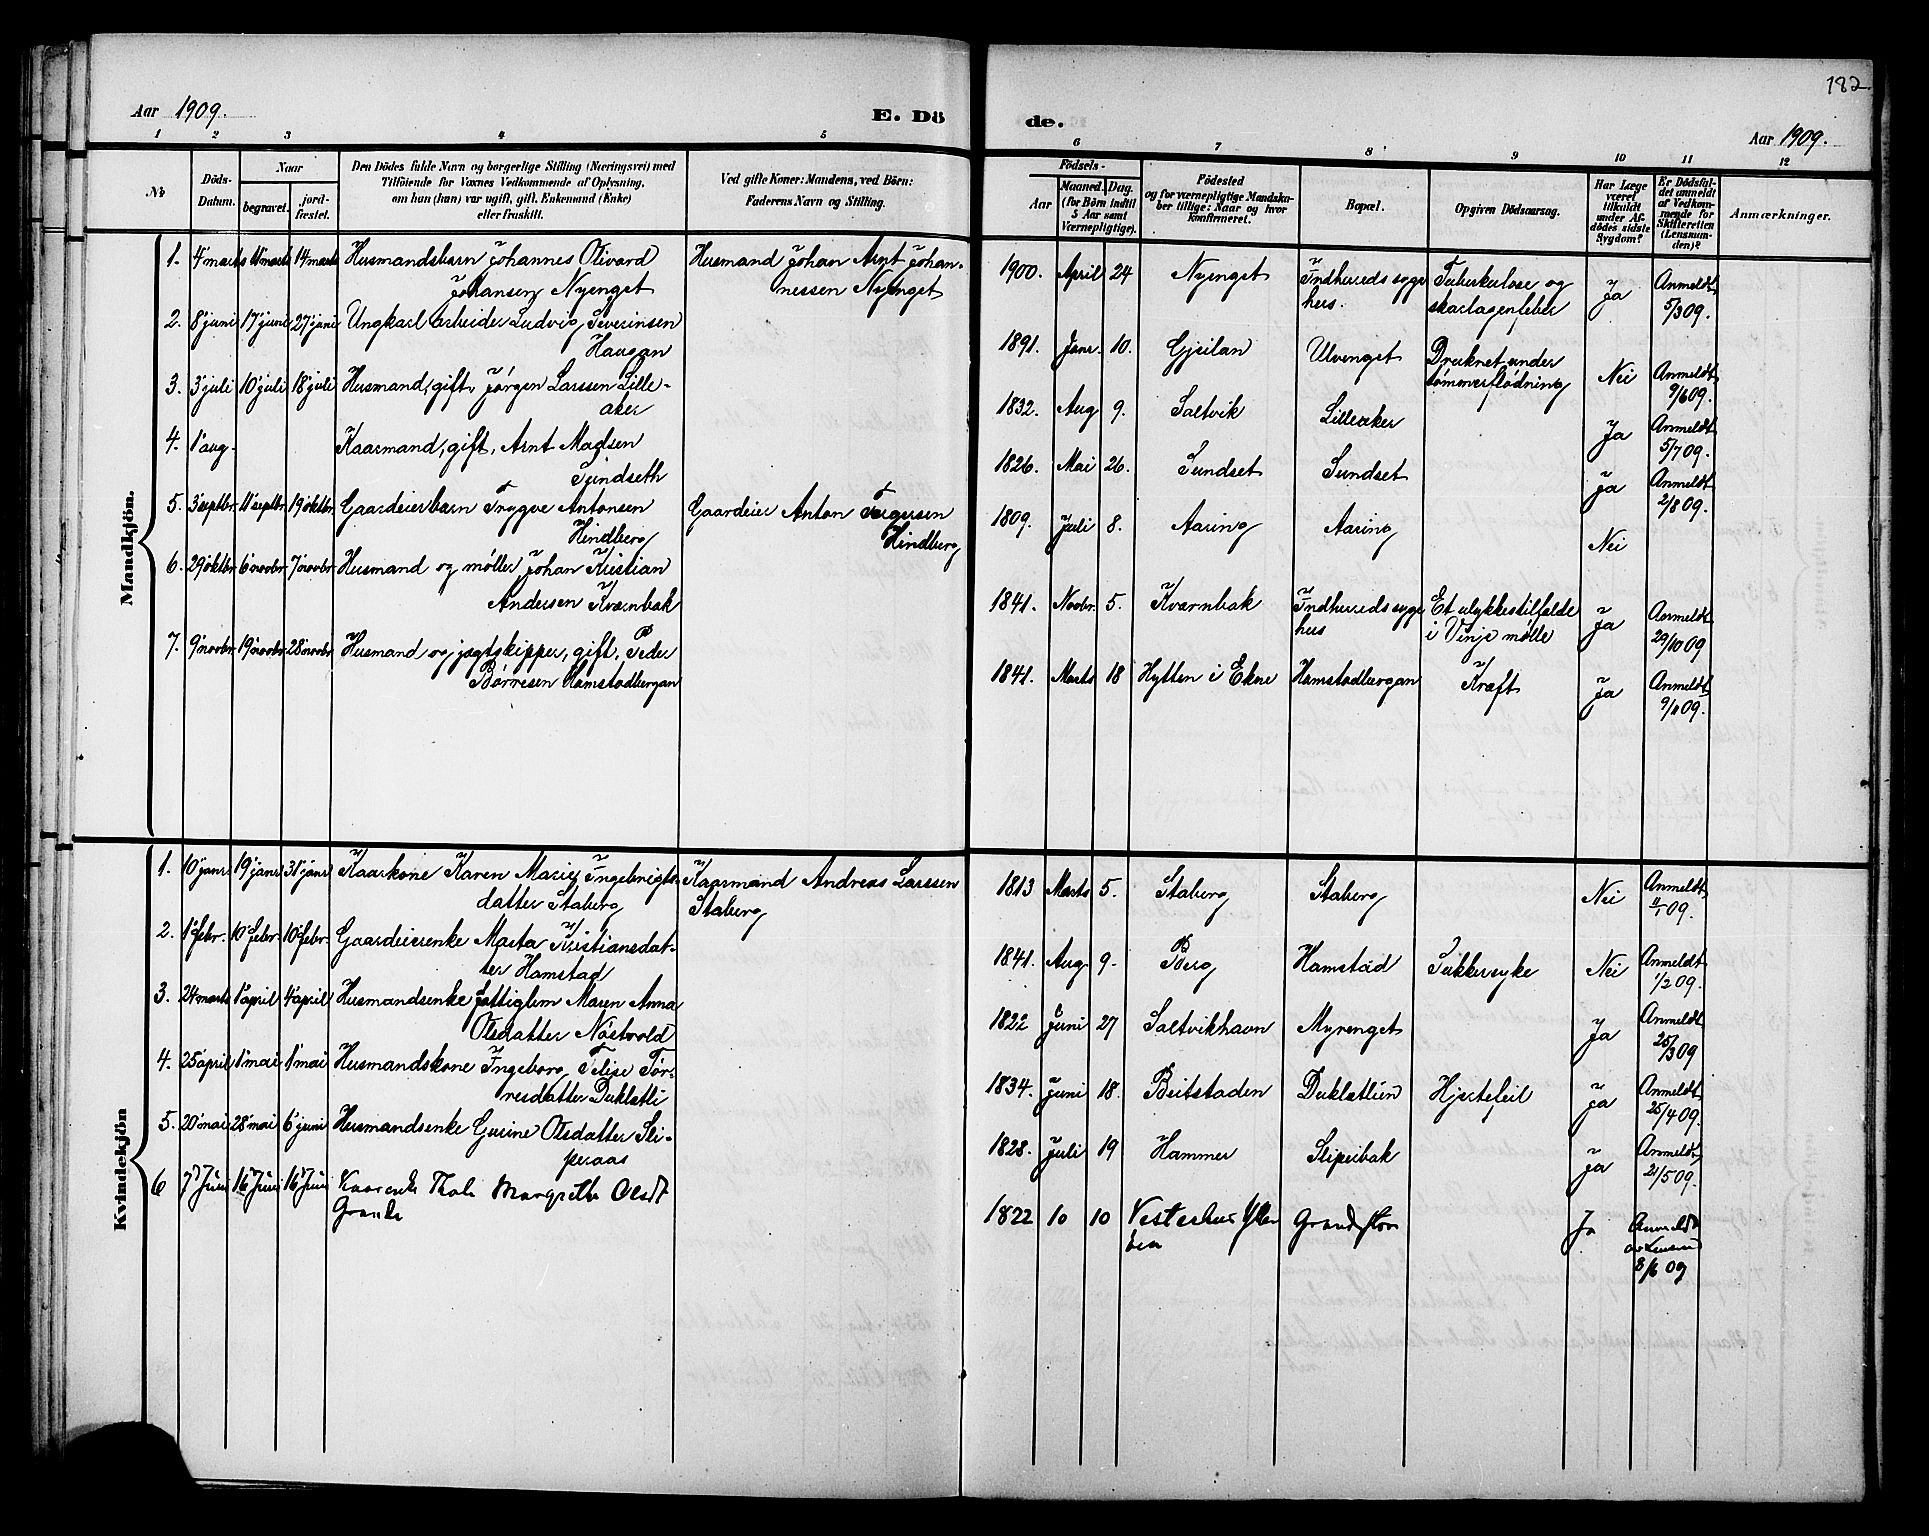 182
Aar 1909.
E. Dö
de.
Aar 1909.
1 2 3 4 5
6 7 8 9 10 11 12
No
Döds-
Datum.
Naar
begravet.
jord-
fæstet.
Den Dödes fulde Navn og borgerlige Stilling (Næringsvei) med
Tilföiende for Voxnes Vedkommende af Oplysning,
om han (hun) var ugift, gift, Enkemand (Enke)
eller fraskilt.
Ved gifte Koner: Mandens, ved Börn:
Faderens Navn og Stilling.
Födsels-
Aar
Maaned. Dag.
(for Börn indtil
5 Aar samt
Værnepligtige).
Födested
og for værnepligtige Mandska-
ber tillige: Naar og hvor
konfirmeret.
Bopæl.
Opgiven Dödsaarsag.
Har Læge
været
tilkaldt
under Af-
dödes sidste
Sygdom?
Er Dödsfal-
det anmeldt
af Vedkom-
mende for
Skifteretten
(Lensman-
den)?
Anmærkninger.
Mandkjön.
1. 4 marts 11 marts 14 marts Husmandsbarn Johannes Olivard
Johansen Nyenget
Husmand Johan Arnt Johan-
nessen Nyenget
1900. April 24 Nyenget Indhereds syge
hus. Tuberkulose og
skarlagenfeber Ja Anmeldt
5/3 09.
2. 8 juni 17 juni 27 juni Ungkarl arbeider Ludvig Severinsen
Haugan
1891. Janr. 10. Gjeilan Ulvenget Druknet under
tømmerflødning Nei Anmeldt
9/6 09.
3. 3 juli 10 juli 18 juli Husmand, gift, Jørgen Larssen Lille-
aker
1832. Aug 9. Saltvik Lilleaker Ja Anmeldt
5/7 09.
4. 1 aug. Kaarmand, gift, Arnt Madsen
Sundseth
1826. Mai 26. Sundset Sundset Ja Anmeldt
2/8 09.
5. 3 septbr. 11 septbr. 19 oktbr. Gaardeierbarn Trygve Antonsen
Hindberg
Gaardeier Anton Torgersen
Hindberg
1809. Juli 8. Aaring Aaring Nei
6. 29 oktbr. 6 novbr. 7 novbr. Husmand og møller Johan Kristian
Andersen Kvarnbak
1841. Novbr. 5. Kvarnbak Indhereds syge
hus Et ulykkestilfælde
i Vinje mølle Ja Anmeldt
29/10 09
7. 9 novbr. 19 novbr. 28 novbr. Husmand og jagtskipper, gift, Peder
Børresen Hamstadbergan
1841. Marts 18 Hytten i Ekne Hamstadbergan Kræft Ja Anmeldt
9/11 09.
Kvindekjön
1. 10 janr. 19 janr. 31 janr. Kaarkone Karen Marie Ingebrigts-
datter Staberg
Kaarmand Andreas Larssen
Staberg
1813 Marts 5. Staberg Staberg Nei Anmeldt
11/1 09.
2. 1 febr. 10 febr. 10 febr. Gaardeierenke Marta Kristiansdat-
ter Hamstad
1841. Aug 9. Berg Hamstad Sukkersyke Nei Anmeldt
1/2 09.
3. 24 marts 1 april 4 april Husmandsenke fattiglem Maren Anna
Olsdatter Nøstvold
1822 Juni 27 Saltvikhavn Myrenget Ja Anmeldt
25/3 09
4. 25 april 1 mai 1 mai Husmandskone Ingeborg Felise Tør-
resdatter Dukletli
1834. Juni 18. Beitstaden Dukletlien Hjertefeil Ja Anmeldt
25/4 09.
5. 20 mai 28 mai 6 juni Husmandsenke Gurine Olsdatter Sli-
peraas
1828. Juli 19 Hammer Sliperbak Ja Anmeldt
21/5 09.
6 7 Juni 16 Juni 16 Juni Kaarenke Margrethe Olsdt
Grande
1822 10 10 Vesterhus Grand Ja Anmeldt
8/6 09